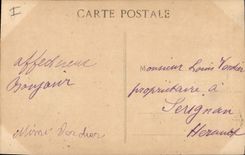 I
CARTE POSTALE
affectueux
Bonjour
Mimi Verdier
Monsieur Louis Verdier
propriétaire à
Serignan
Herault